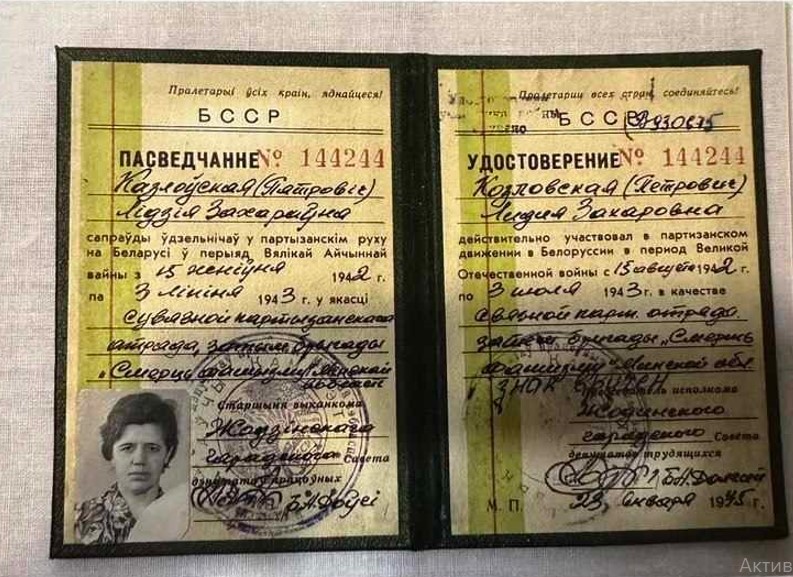 Пралетарыі ўсіх краін, яднайцеся!
БССР
ПАСВЕДЧАННЕ № 144244
Казлоўская (Пятровіс)
Лідзія Захараўна
сапраўды ўдзельнічаў у партызанскім руху
на Беларусі ў перыяд Вялікай Айчыннай
вайны з 15 жніўня 1942 г.
па 3 ліпіня 1943 г. у якасці
сувязной партызанскага
атрада, затым брыгады
"Смерць фашизму" Мінскай
вобласці
Старшыня выканкома
Жодзінскага
гарадскога Савета
дэпутатаў працоўных
Пролетарии всех стран, соединяйтесь!
БССР
УДОСТОВЕРЕНИЕ № 144244
Козловская (Петровис)
Лидия Захаровна
действительно участвовал в партизанском
движении в Белоруссии в период Великой
Отечественной войны с 15 августа 1942 г.
по 3 июля 1943 г. в качестве
связной парт. отряда.
затем бригады "Смерть
фашизму" Минской обл.
ЗНАК ВРУЧЕН
Председатель исполкома
Жодинского
городского Совета
депутатов трудящихся
М. П. 23 января 1975 г.
Актив